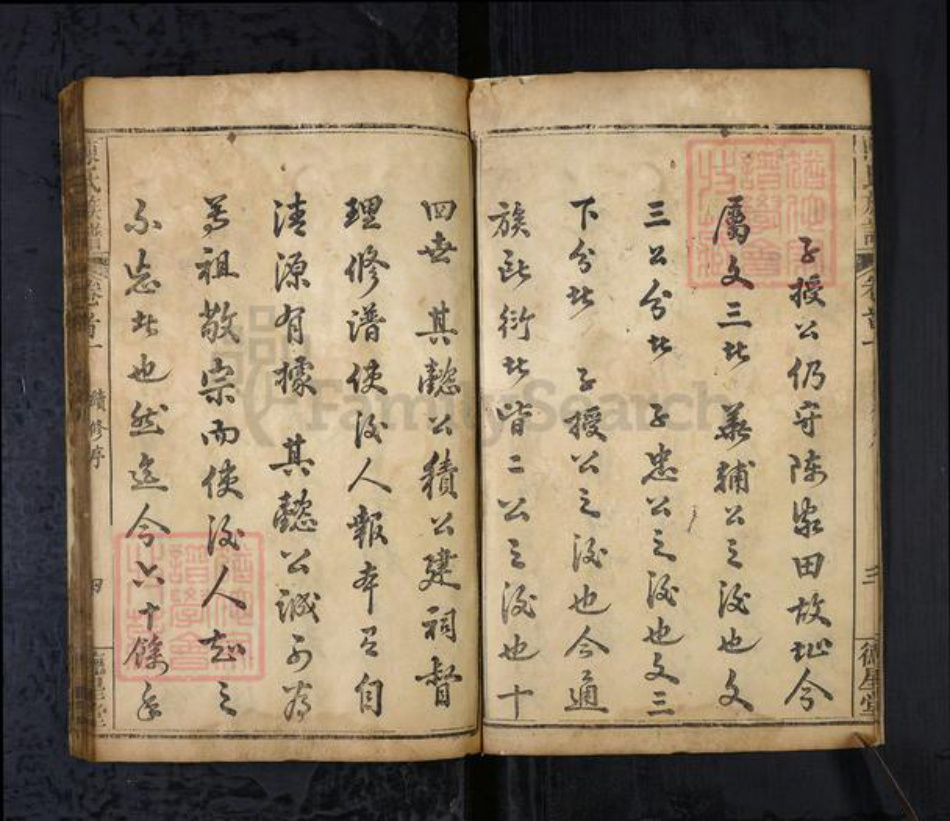 子授公仍守陈家田故址今
屬文三北義輔公之後也文
三公分北子忠公之後也文三
下分北子授公之後也今通
族所衍北皆二公之後也十
德星堂
三
四世其懿公積公建祠督
理修譜使後人報本有自
清源有據其懿公誠可為
尊祖敬宗而使後人知之
不忘北也然迄今六十餘年
陳氏族譜
卷首一
續修序
四
德星堂
FamilySearch